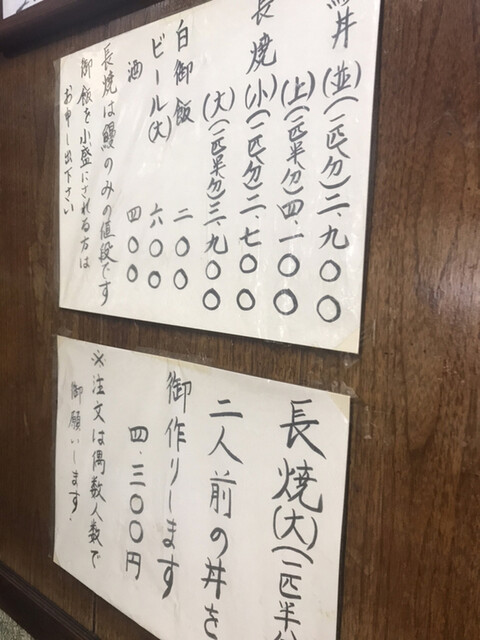 丼(並)(一匹分)二、九〇〇
(上)(一匹半分)四、一〇〇
長焼(小)(一匹分)二、七〇〇
(大)(一匹半分)三、九〇〇
白御飯 二〇〇
ビール(大) 六〇〇
酒 四〇〇
長焼は鰻のみの値段です
御飯を小盛にされる方は
お申し出下さい
長焼(大)(一匹半分
二人前の丼を
御作りします
四、三〇〇円
※注文は偶数人数で
御願いします.